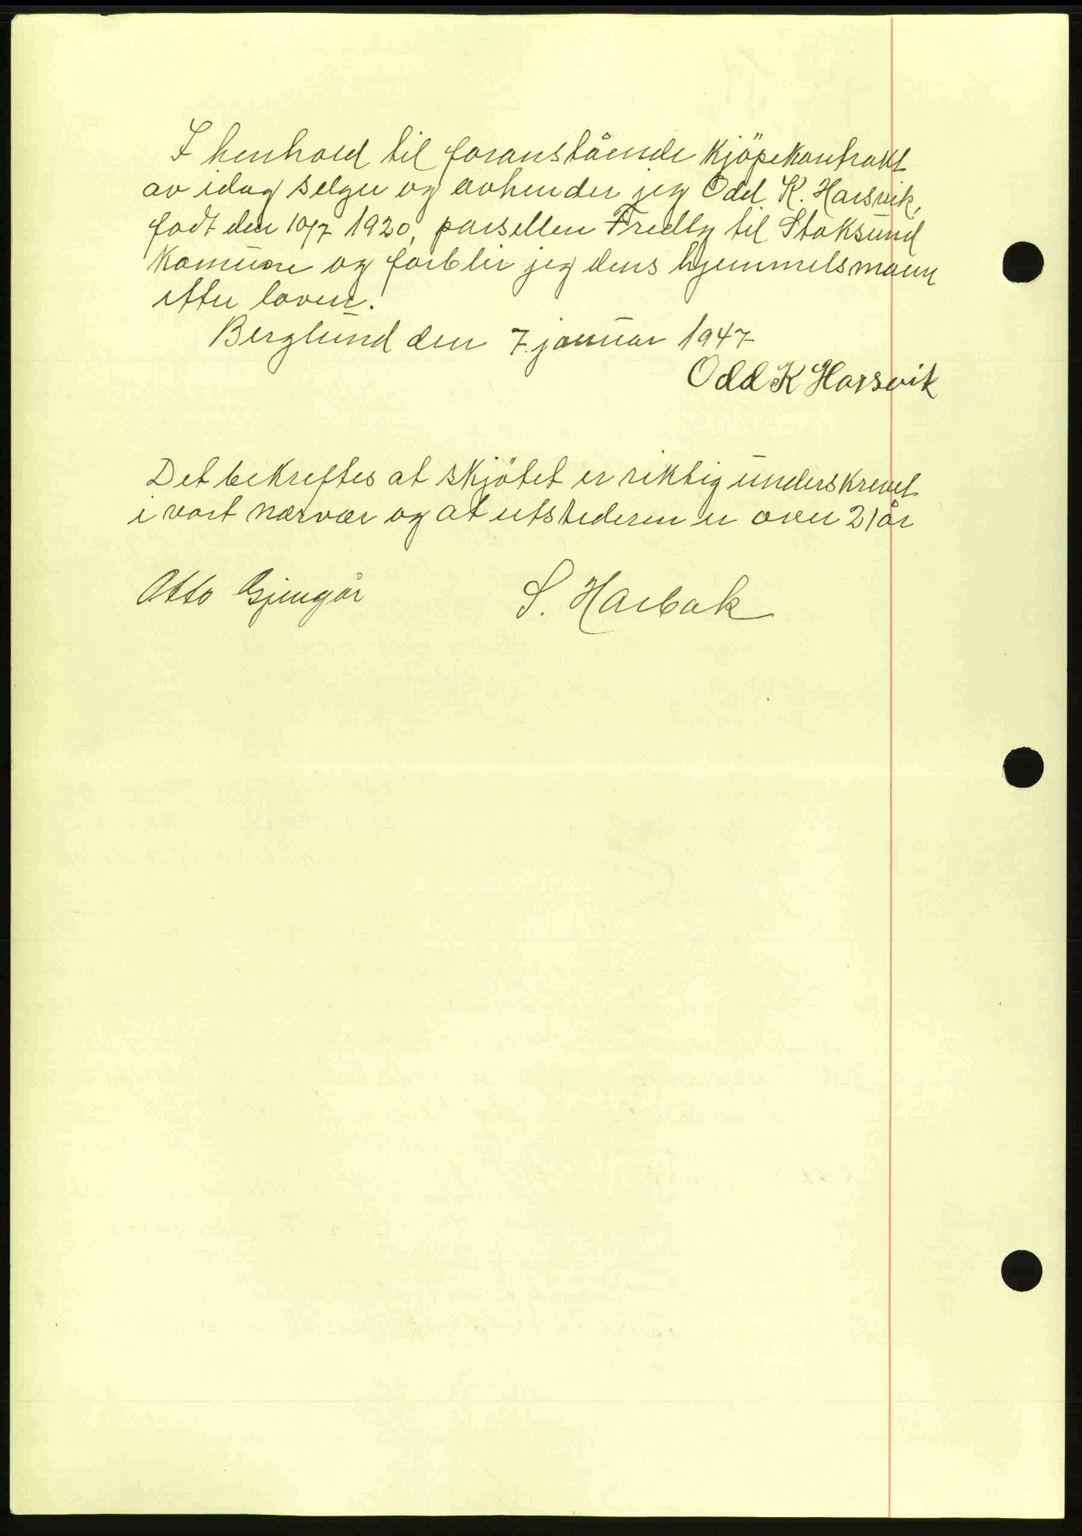 I henhold til foranstående kjöpekontrakt
av idag selger og avhender jeg Odd K. Harsvik,
födt den 10/7 1920, parsellen Fredly til Stoksund
Komune og forblir jeg dens hjemmelsmann
efter loven.
Berglund den 7. januar 1947
Odd K Harsvik
Det bekreftes at skjötet er riktig underskrevet
i vort nærvær og at utstederen er over 21 år
Otto Gjengår S. Harbak